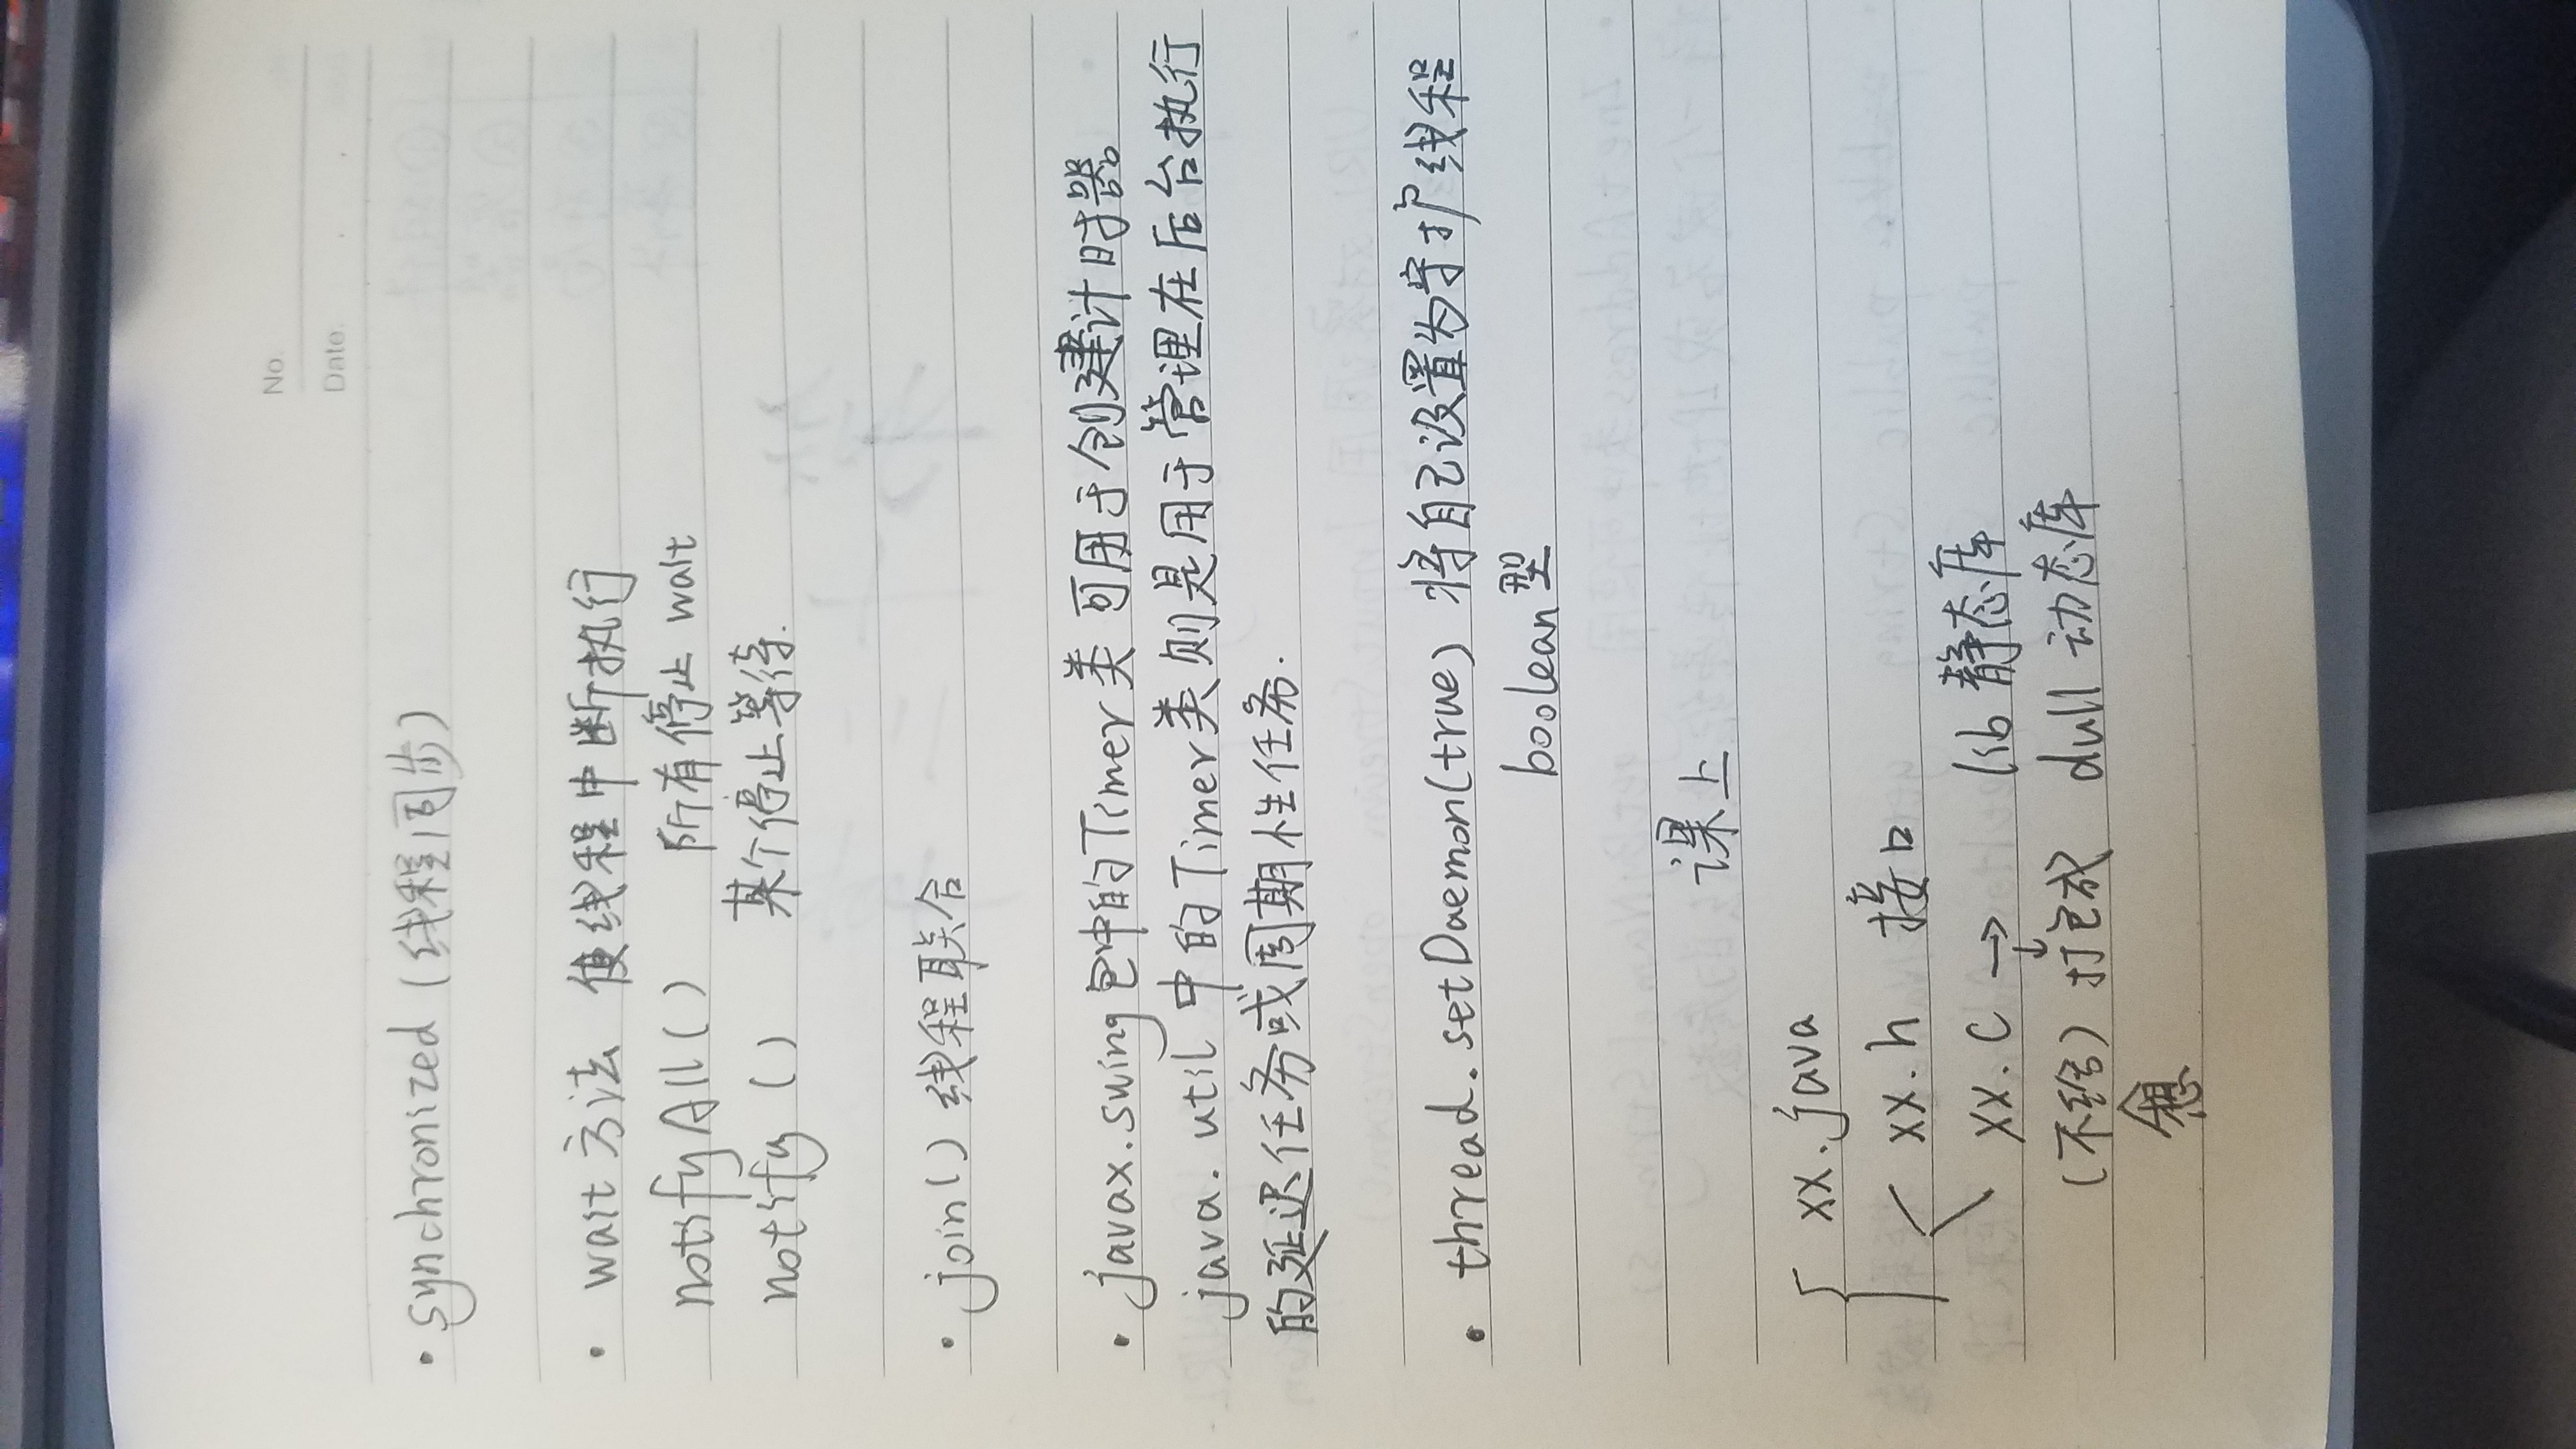 No.
Date.
· synchronized (线程同步)
· wait 方法 使线程中断执行
notifyAll() 所有停止 wait
notify() 某个停止等待.
· join() 线程联合
· javax.swing包中的Timer类 可用于创建计时器
java.util 中的Timer类则是用于管理在后台执行
的延迟任务或周期性任务.
· thread.setDaemon(true) 将自己设置为守护线程
boolean型
课上
xx.java
xx.h 接口
xx.c → lib 静态库
(不给) ↓ 打包成 dull 动态库